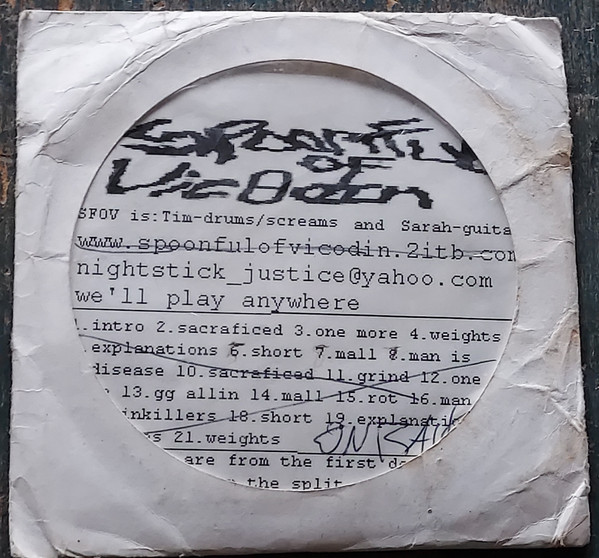 SPOONFUL
OF
VICODIN
SFOV is:Tim-drums/screams and Sarah-guita
www.spoonfulofvicodin.2itb.com
nightstick_justice@yahoo.com
we'll play anywhere
.intro 2.sacraficed 3.one more 4.weights
.explanations 6.short 7.mall 8.man is
disease 10.sacraficed 11.grind 12.one
13.gg allin 14.mall 15.rot 16.man
inkillers 18.short 19.explanatic
s 21.weights
are from the first de
the split